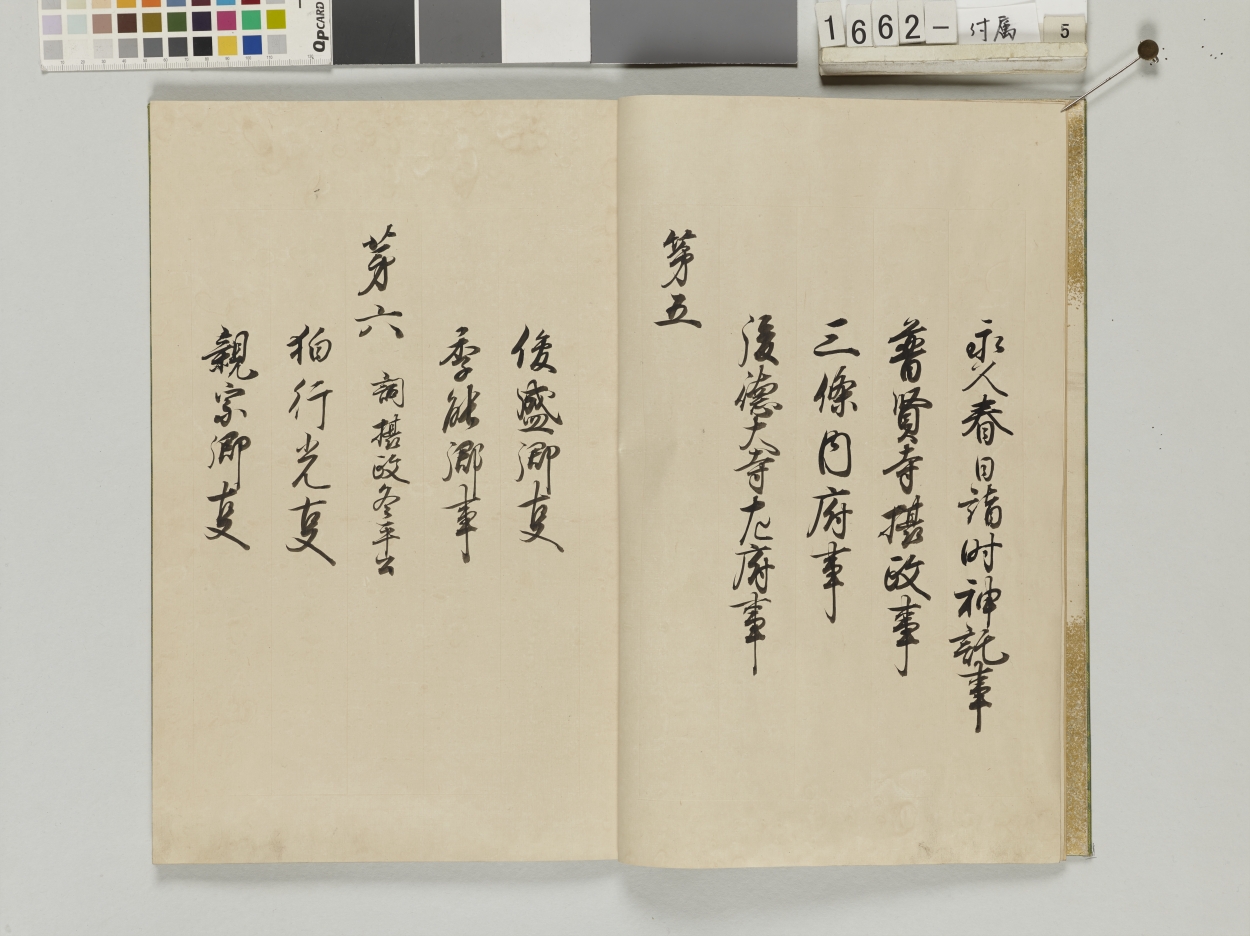 永久春日詣時神託事
普賢寺摂政事
三條内府事
後徳大寺左府事
第五
俊盛卿事
季能卿事
第六 詞摂政冬平公
狛行光事
親宗卿事
1662-付属 5
QPCARD